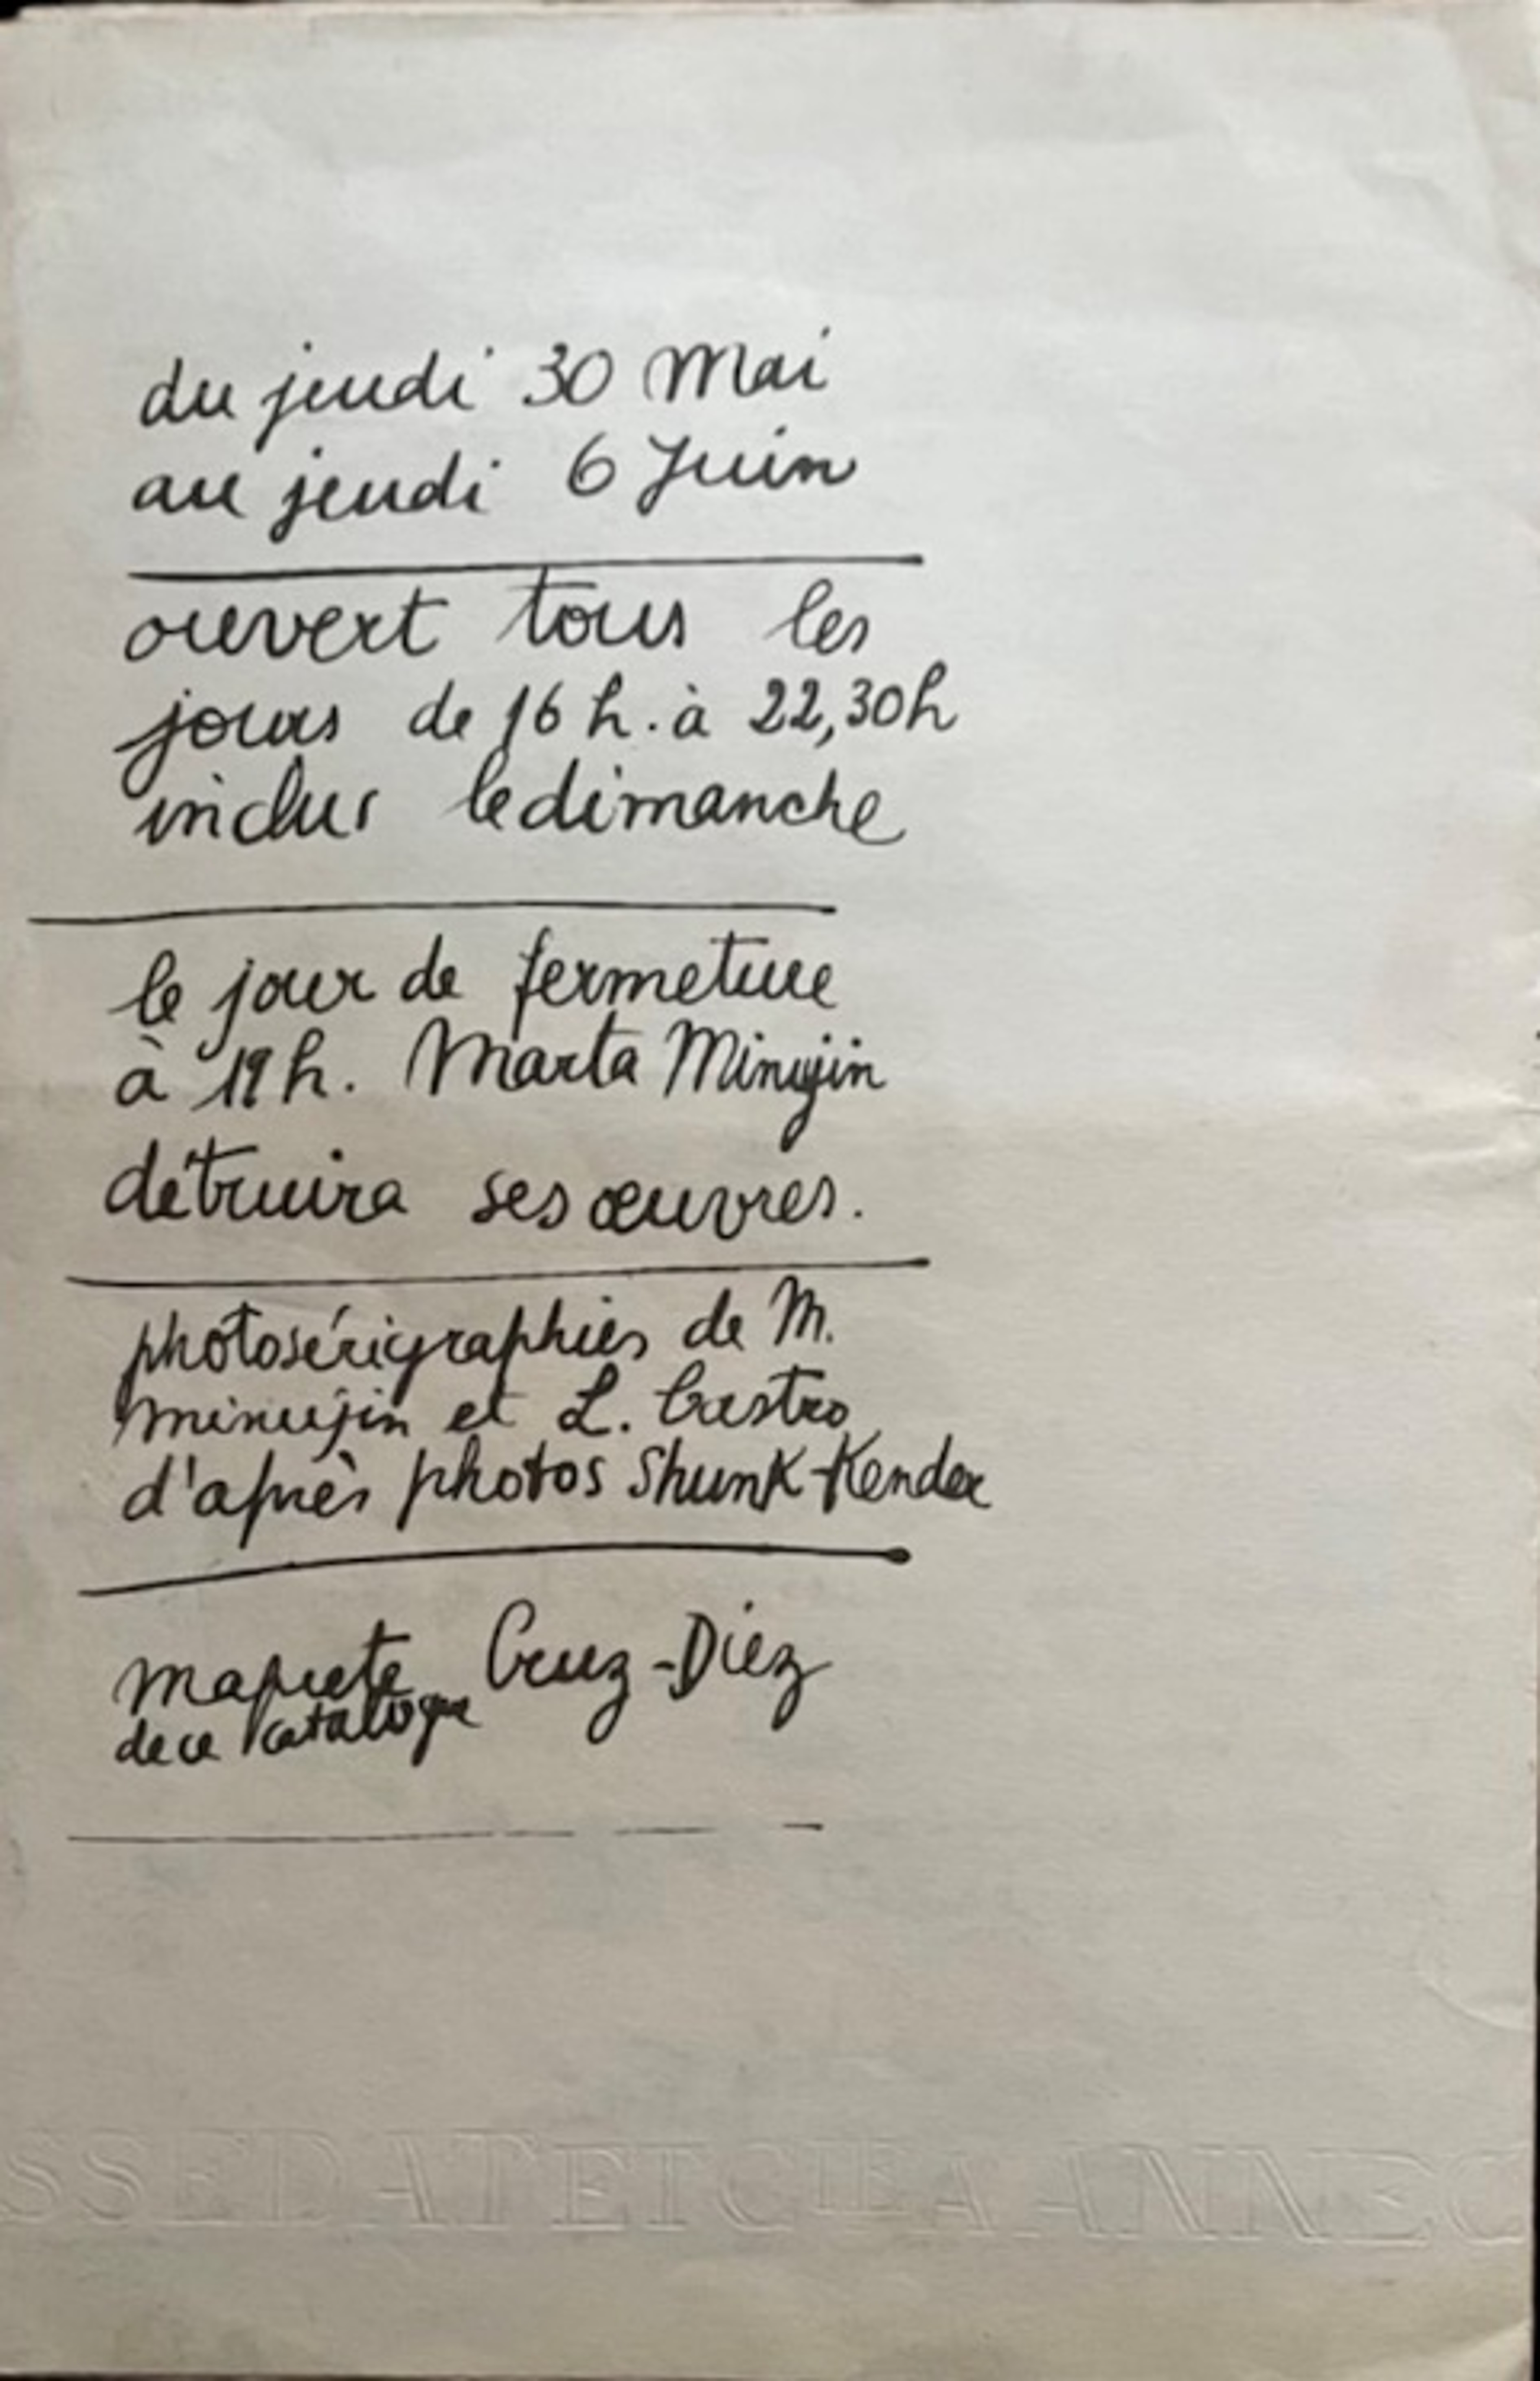 du jeudi 30 Mai
au jeudi 6 Juin
ouvert tous les
jours de 16 h. à 22,30h
inclus le dimanche
le jour de fermeture
à 19 h. Marta Minujin
détruira ses œuvres.
photosérigraphies de M.
Minujin et L. Castro
d'après photos Shunk-Kender
maquete Cruz-Diez
de ce catalogue
SSEDATETCIEAANNEC